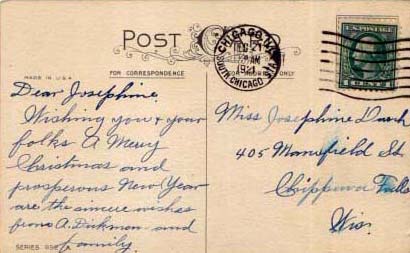 POST
CHICAGO, ILL.
DEC 21
AM
1921
SOUTH CHICAGO STA.
U.S. POSTAGE
1 CENT 1
MADE IN U.S.A.
FOR CORRESPONDENCE
ONLY
Dear Josephine.
Wishing you & your
folks A Merry
Christmas and
prosperous New Year
are the sincere wishes
from A. Dickman and
family.
Miss Josephine
405 Mansfield St
Chippewa Falls
Wis.
SERIES